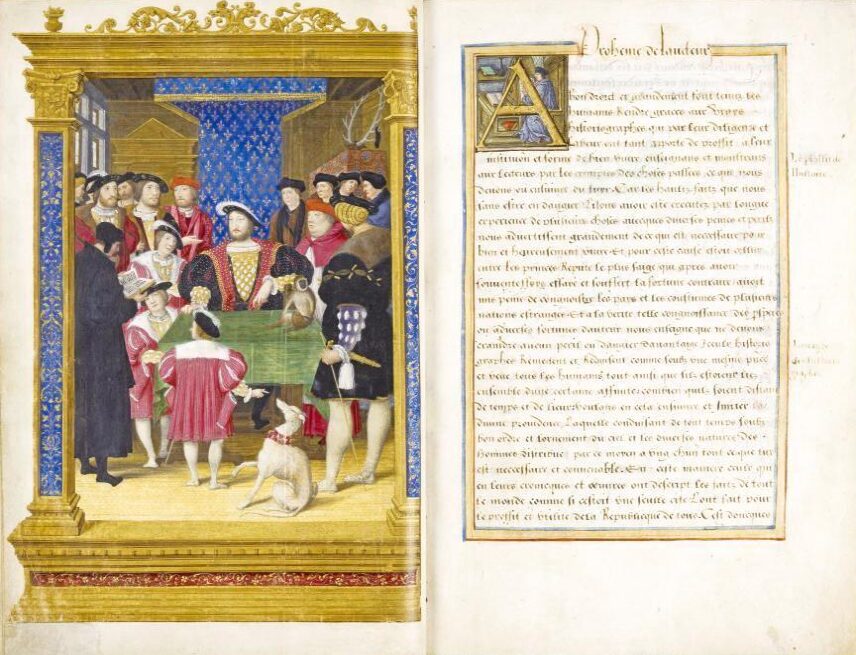 Proheme de lauteur
A bon droict et grandement sont tenuz les
humains Rendre graces aux vrays
historiographes qui par leur diligence et
labeur ont tant aporte de proffit a leur
institution et forme de bien vivre enseignans et monstrans
aux Lecteurs par les exemples des choses passees ce que nous
devons ou ensuivre ou fuyr Car les haultz faitz que nous
sans estre en dangier Lisons avoir este executez par longue
experience de plusieurs choses avecques diverses peines et perilz
nous advertissent grandement de ce qui est necessaire pour
bien et heureusement vivre Et pour ceste cause estoit celluy
entre les princes Repute le plus saige qui apres avoir
souventesfoys essaye et souffert la fortune contraire avoit
mis peine de congnoistre les pays et les coustumes de plusieurs
nations estranges Et a la verite telle congnoissance des
ou adverses fortunes dautruy nous enseigne que ne devons
craindre aucun peril ou dangier davantaige iceulx historio
graphes Remectent et Reduisent comme soubz une mesme
et veue tous les humains tout ainsi que silz estoient liez
ensemble dune certaine affinite combien quilz soient distans
de temps et de lieux en cela ensuivre et Imiter la
divine providence Laquelle conduisant de tout temps soubz
bon ordre et le ciel et les diverses natures des
hommes distribue par ce moyen a ung chun tout ce que luy
est necessaire et convenable En ceste maniere ceulx qui
en leurs cronicques et oeuvres ont descript les faitz de tout
le monde comme si cestoit une seulle cite Lont fait pour
le proffit et utilite de la Republicque de tous Cest doncques
Le proffit de
lhistoire